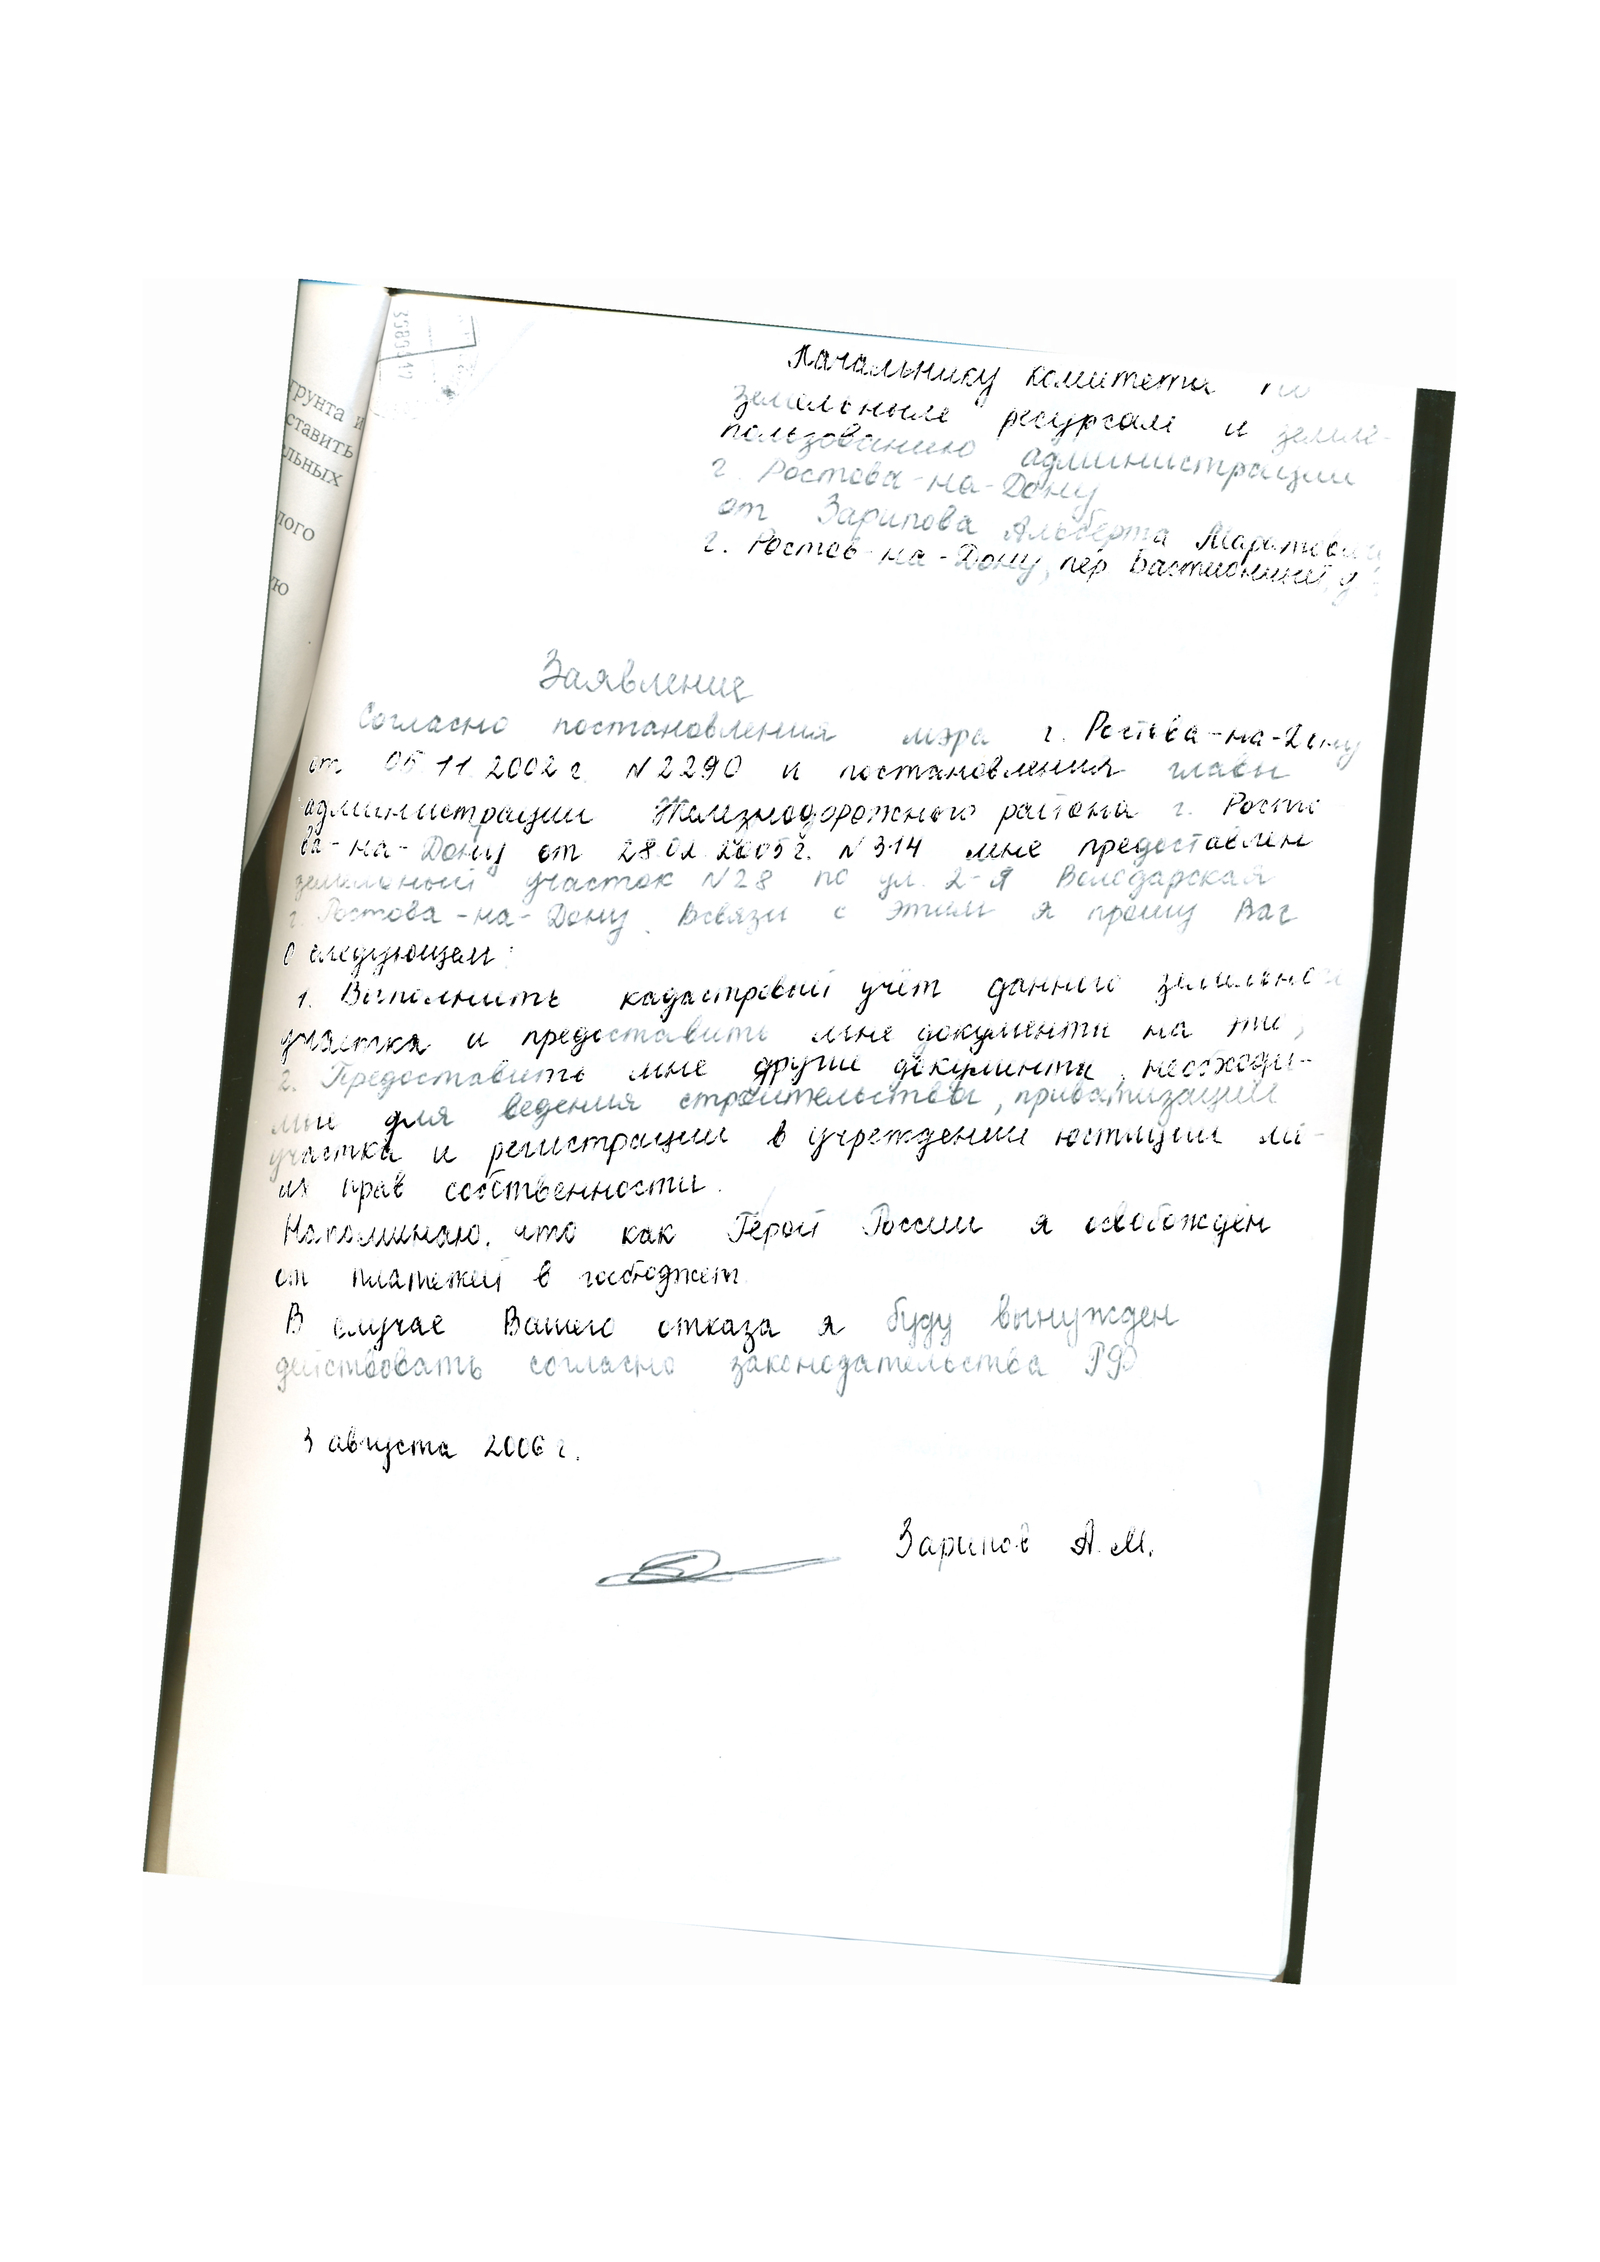 грунта и
ставить
ельных
лого
ую
Начальнику комитета по
земельным ресурсам и земле-
пользованию администрации
г. Ростова-на-Дону
от Зарипова Альберта Маратовича
г. Ростов-на-Дону, пер Бастионный, д
Заявление
Согласно постановления мэра г. Ростова-на-Дону
от 05.11.2002 г. №2290 и постановления главы
администрации Железнодорожного района г. Росто
ва-на-Дону от 28.02.2005 г. №314 мне предоставлен
земельный участок №28 по ул. 2-я Володарская
г. Ростова-на-Дону. Всвязи с этим я прошу Вас
о следующем:
1. Выполнить кадастровый учёт данного земельного
участка и предоставить мне документы на это;
2. Предоставить мне другие документы, необходи-
мые для ведения строительства, приватизации
участка и регистрации в учреждении юстиции мо-
их прав собственности.
Напоминаю, что как Герой России я освобождён
от платежей в госбюджет.
В случае Вашего отказа я буду вынужден
действовать согласно законодательства РФ
3 августа 2006 г.
Зарипов А.М.